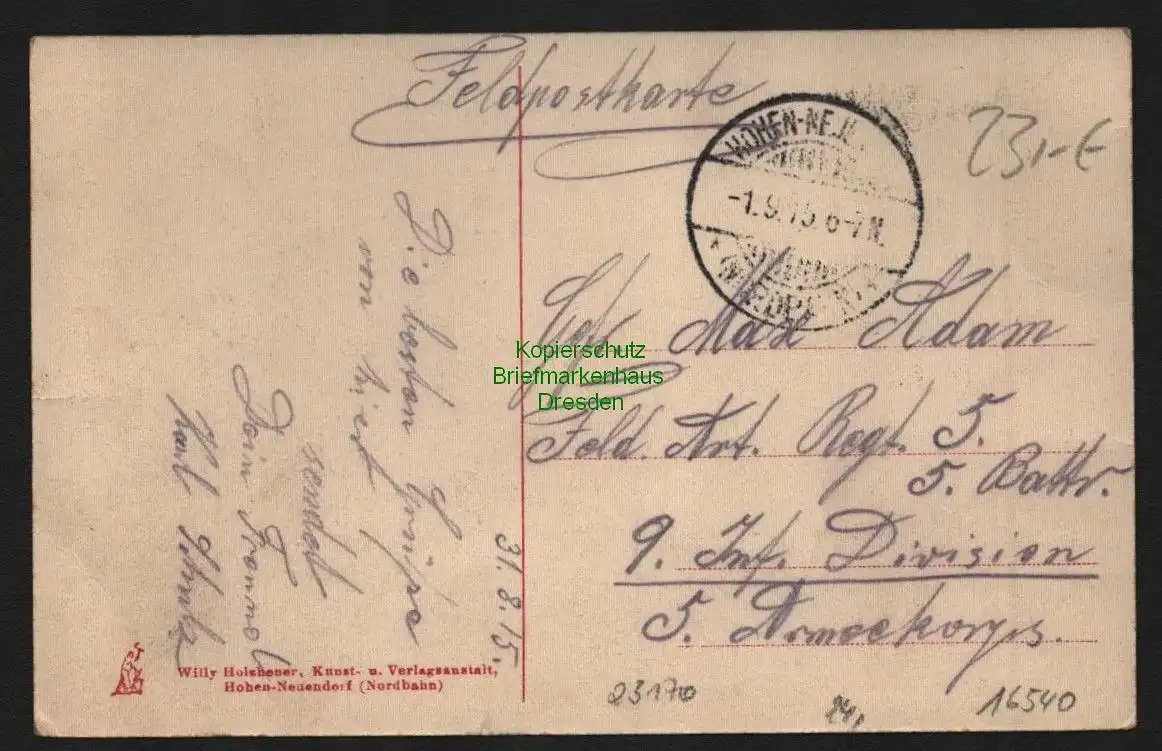 Feldpostkarte
23,-€
HOHEN-NEU
-1.9.15.6-7N.
(NORDBAHN)
Gefr. Max Adam
Feld. Art. Regt. 5.
5. Battr.
9. Inf. Division
5. Armeekorps.
31.8.15.
Die besten Grüße
von hier
sendet
Dein Freund
Karl Schulz
Kopierschutz
Briefmarkenhaus
Dresden
Willy Holzheuer, Kunst- u. Verlagsanstalt,
Hohen-Neuendorf (Nordbahn)
23170
16540